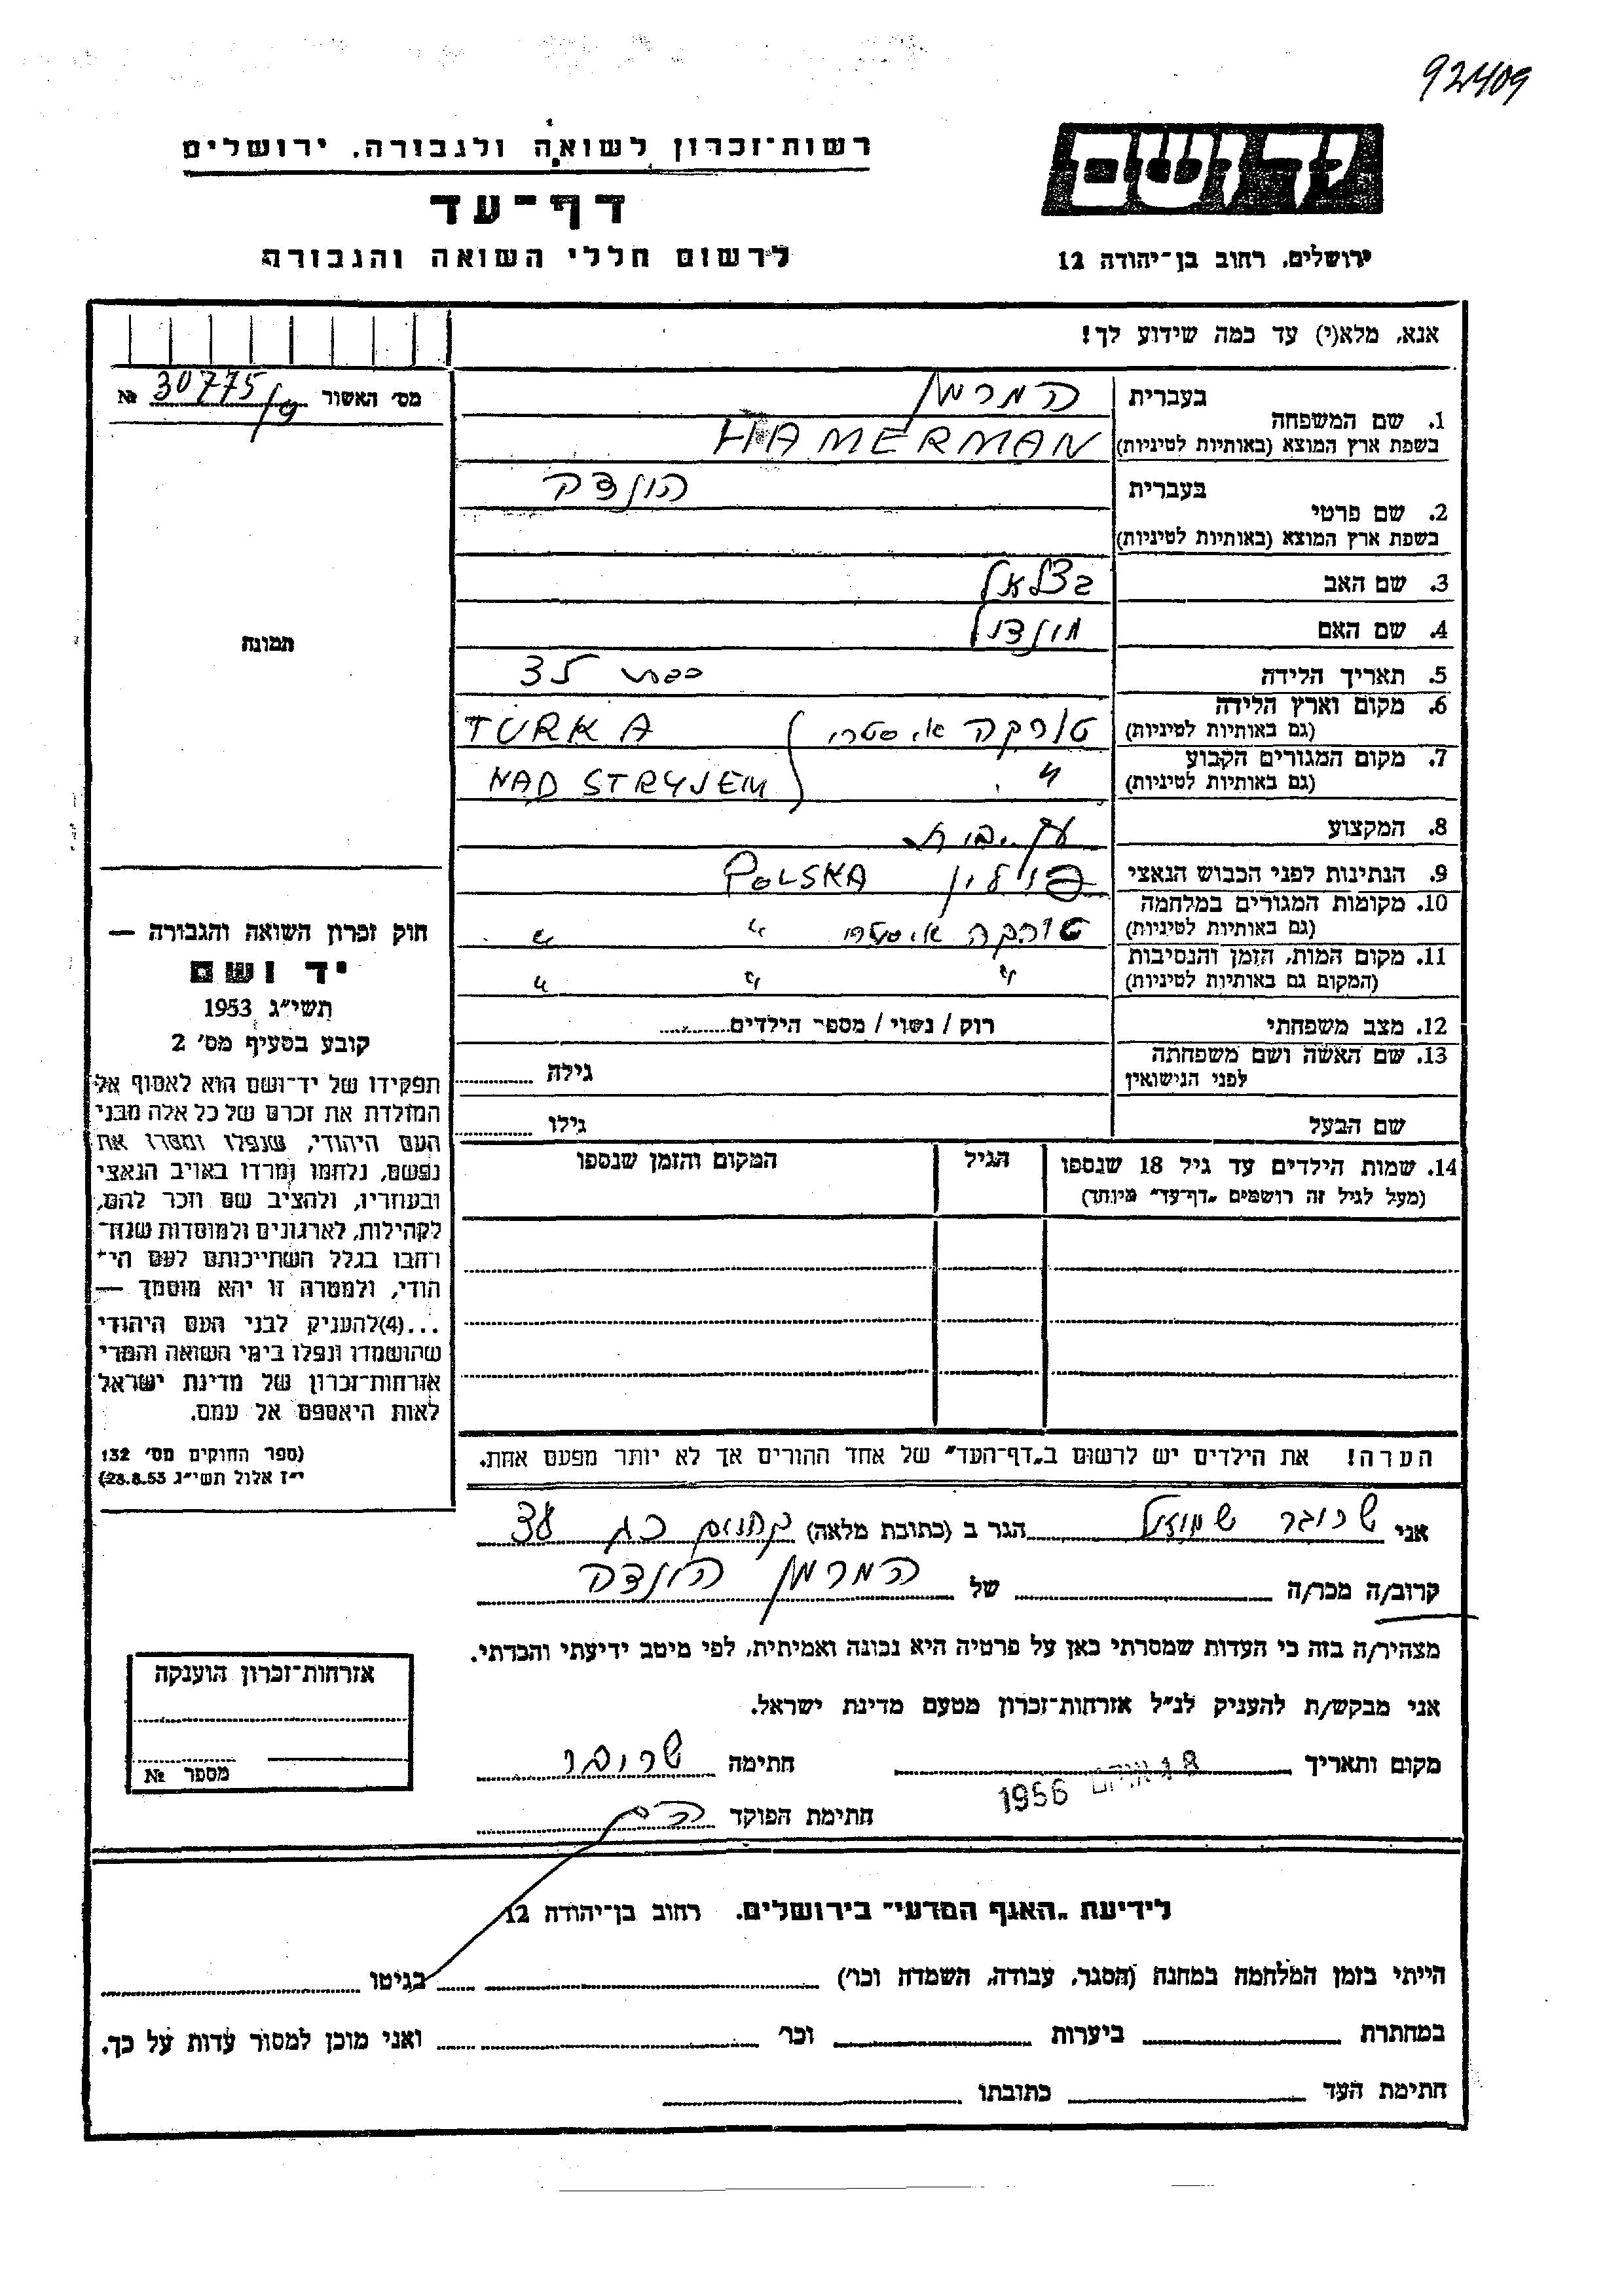 92409
יד ושם
רשות־זכרון לשואה ולגבורה. ירושלים
דף־עד
לרשום חללי השואה והגבורה
ירושלים, רחוב בן־יהודה 12
אנא, מלא(י) עד כמה שידוע לך!
מס׳ האשור 30775/ № 
1. שם המשפחה בעברית המרמן
בשפת ארץ המוצא (באותיות לטיניות) HAMERMAN
2. שם פרטי בעברית הונדה
בשפת ארץ המוצא (באותיות לטיניות)
3. שם האב בצלאל
4. שם האם
5. תאריך הלידה 35
6. מקום וארץ הלידה (גם באותיות לטיניות) טורקה TURKA
7. מקום המגורים הקבוע (גם באותיות לטיניות) " NAD STRYJEM
8. המקצוע
9. הנתינות לפני הכבוש הנאצי פולין POLSKA
10. מקומות המגורים במלחמה (גם באותיות לטיניות) טורקה " "
11. מקום המות, הזמן והנסיבות (המקום גם באותיות לטיניות) " " "
12. מצב משפחתי רוק / נשוי / מספר הילדים
13. שם האשה ושם משפחתה לפני הנישואין גילה
שם הבעל גילו
14. שמות הילדים עד גיל 18 שנספו הגיל המקום והזמן שנספו
(מעל לגיל זה רושמים „דף־עד״ מיוחד)
הערה! את הילדים יש לרשום ב„דף־העד״ של אחד ההורים אך לא יותר מפעם אחת.
תמונה
חוק זכרון השואה והגבורה —
יד ושם
תשי״ג 1953
קובע בסעיף מס׳ 2
תפקידו של יד־ושם הוא לאסוף אל
המולדת את זכרם של כל אלה מבני
העם היהודי, שנפלו ומסרו את
נפשם, נלחמו ומרדו באויב הנאצי
ובעוזריו, ולהציב שם וזכר להם,
לקהילות, לארגונים ולמוסדות שנח־
רחבו בגלל השתייכותם לעם הי־
הודי, ולמטרה זו יהא מוסמך —
...(4)להעניק לבני העם היהודי
שהושמדו ונפלו בימי השואה והמרי
אזרחות־זכרון של מדינת ישראל
לאות היאספם אל עמם.
(ספר החוקים מס׳ 132
י״ז אלול תשי״ג 28.8.53)
אני שמואל הגר ב (כתובת מלאה)
קרוב/ה מכר/ה של המרמן הונדה
מצהיר/ה בזה כי העדות שמסרתי כאן על פרטיה היא נכונה ואמיתית, לפי מיטב ידיעתי והכרתי.
אני מבקש/ת להעניק לנ״ל אזרחות־זכרון מטעם מדינת ישראל.
מקום ותאריך 1956 חתימה
חתימת הפוקד
אזרחות־זכרון הוענקה
מספר №
לידיעת „האגף המדעי״ בירושלים. רחוב בן־יהודה 12
הייתי בזמן המלחמה במחנה (הסגר, עבודה, השמדה וכו׳) בגיטו
במחתרת ביערות וכו׳ ואני מוכן למסור עדות על כך.
חתימת העד כתובתו